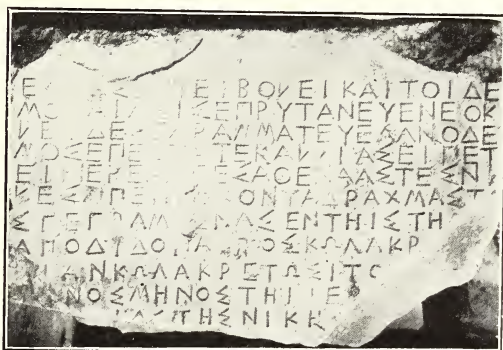 Ε ΕΙΒΟΛΕΙΚΑΙΤΟΙΔΕ
Μ ΣΕΠΡΥΤΑΝΕΥΕΝΕΟΚ
Λ ΔΕ ΡΑΜΜΑΤΕΥΕΑΓΝΟΔΕ
ΜΟΣΕΠΕ ΤΕΚΑΛΛΙΑΣΕΙΠΕΤ
ΕΙ ΕΣΑΘΕΝΑΑΣΤΕΣΝΙ
ΚΕΣΠΕ ΚΟΝΤΑΔΡΑΧΜΑΣΤ
ΣΓΕΓΡΑΜ ΝΑΣΕΝΤΗΙΣΤΗ
ΑΠΟΔΙΔΟΝΑ ΤΟΣΚΩΛΑΚΡ
ΙΑΝΚΩΛΑΚΡΕΤΩΣΙΤΟ
ΝΟΣΜΗΝΟΣΤΗΙΙΕ
ΑΣΤΗΣΝΙΚΗ